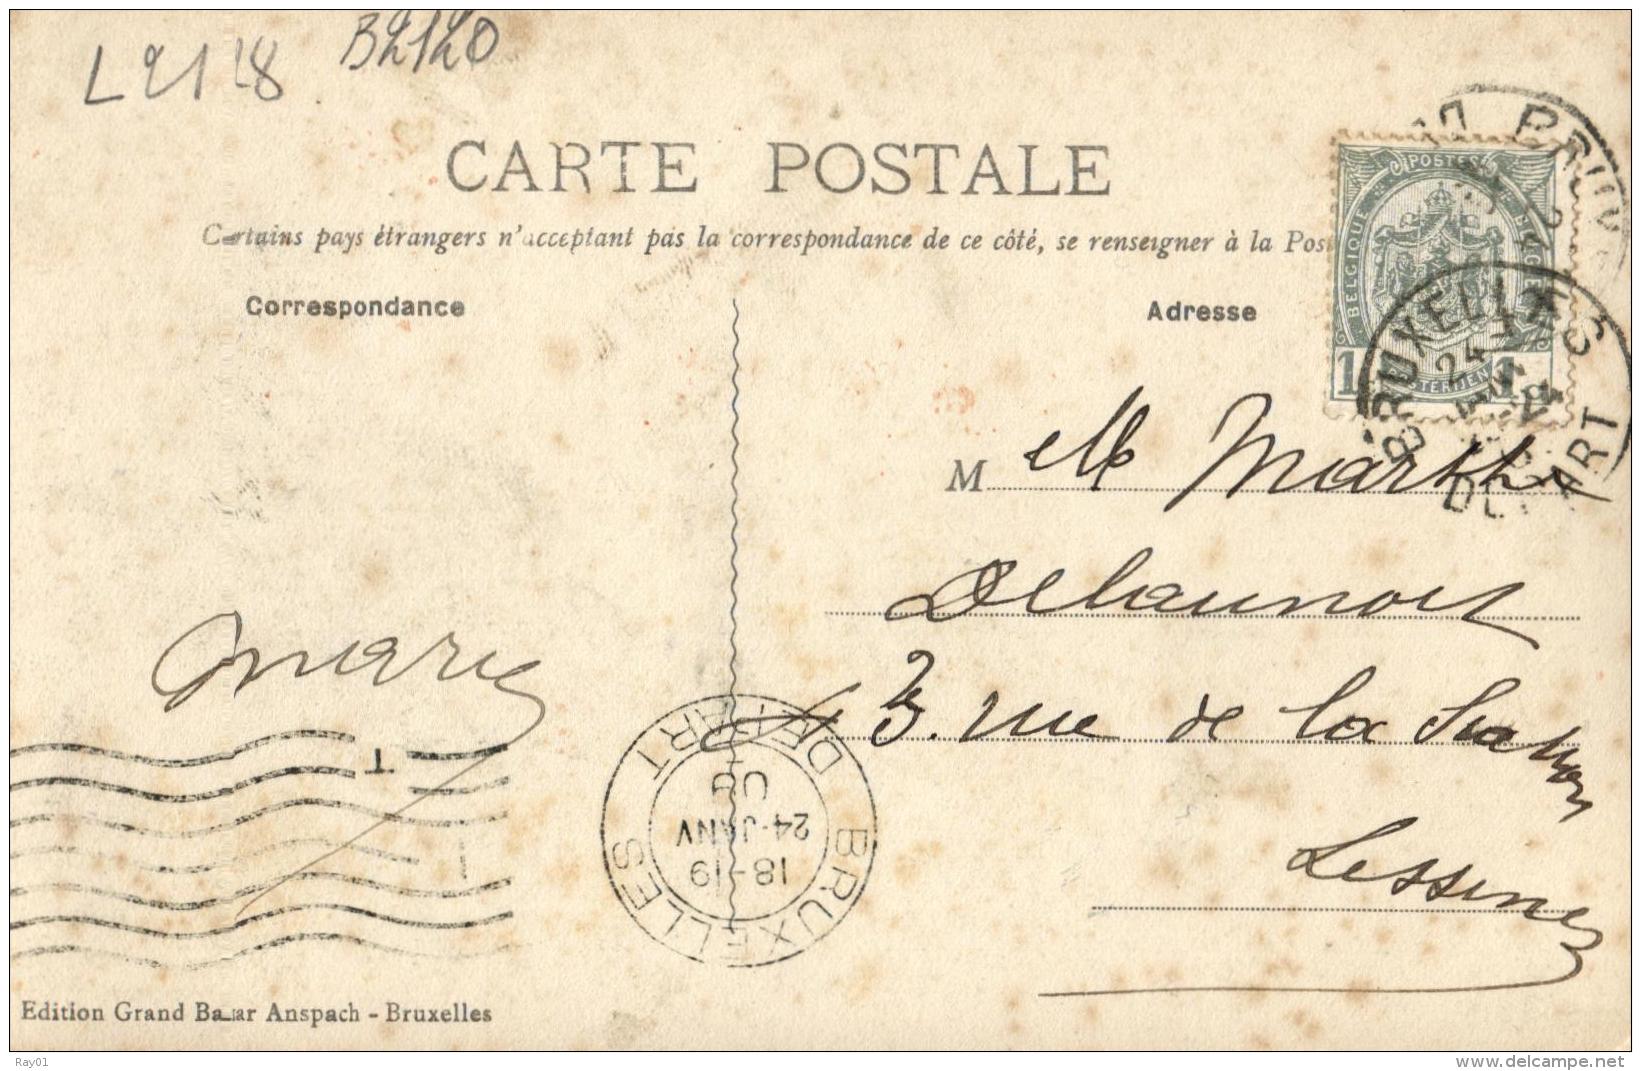 L2118 B2120
CARTE POSTALE
Certains pays étrangers n'acceptant pas la correspondance de ce côté, se renseigner à la Pos
Correspondance
Adresse
POSTES
BELGIQUE
BELGIE
1 1
BRUXELLES
24
DEPART
M elle Marthe
Delaunois
3. rue de la Station
Lessines
Marie
T
BRUXELLES DEPART
18-19
24 JANV
08
Edition Grand Bazar Anspach - Bruxelles
Ray01
www.delcampe.net